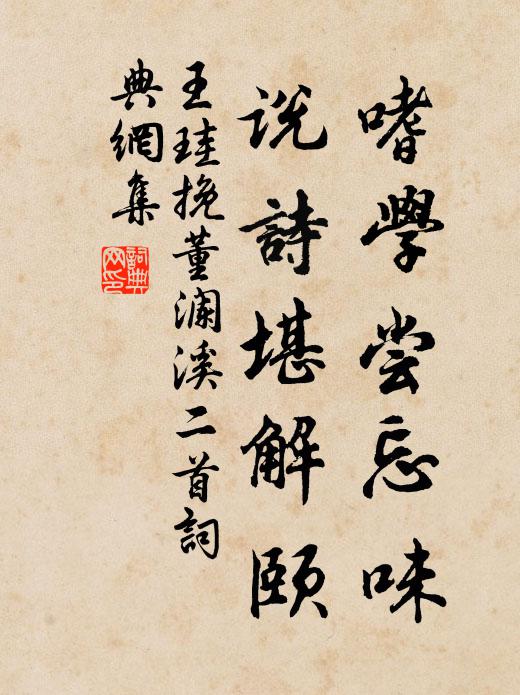 嗜學嘗忘味
說詩堪解頤
王珪挽董瀾溪二首詞
典網集
詞典
网印